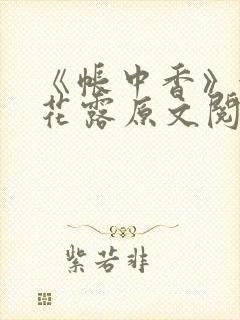 《帐中香》
花露原文阅
紫若非